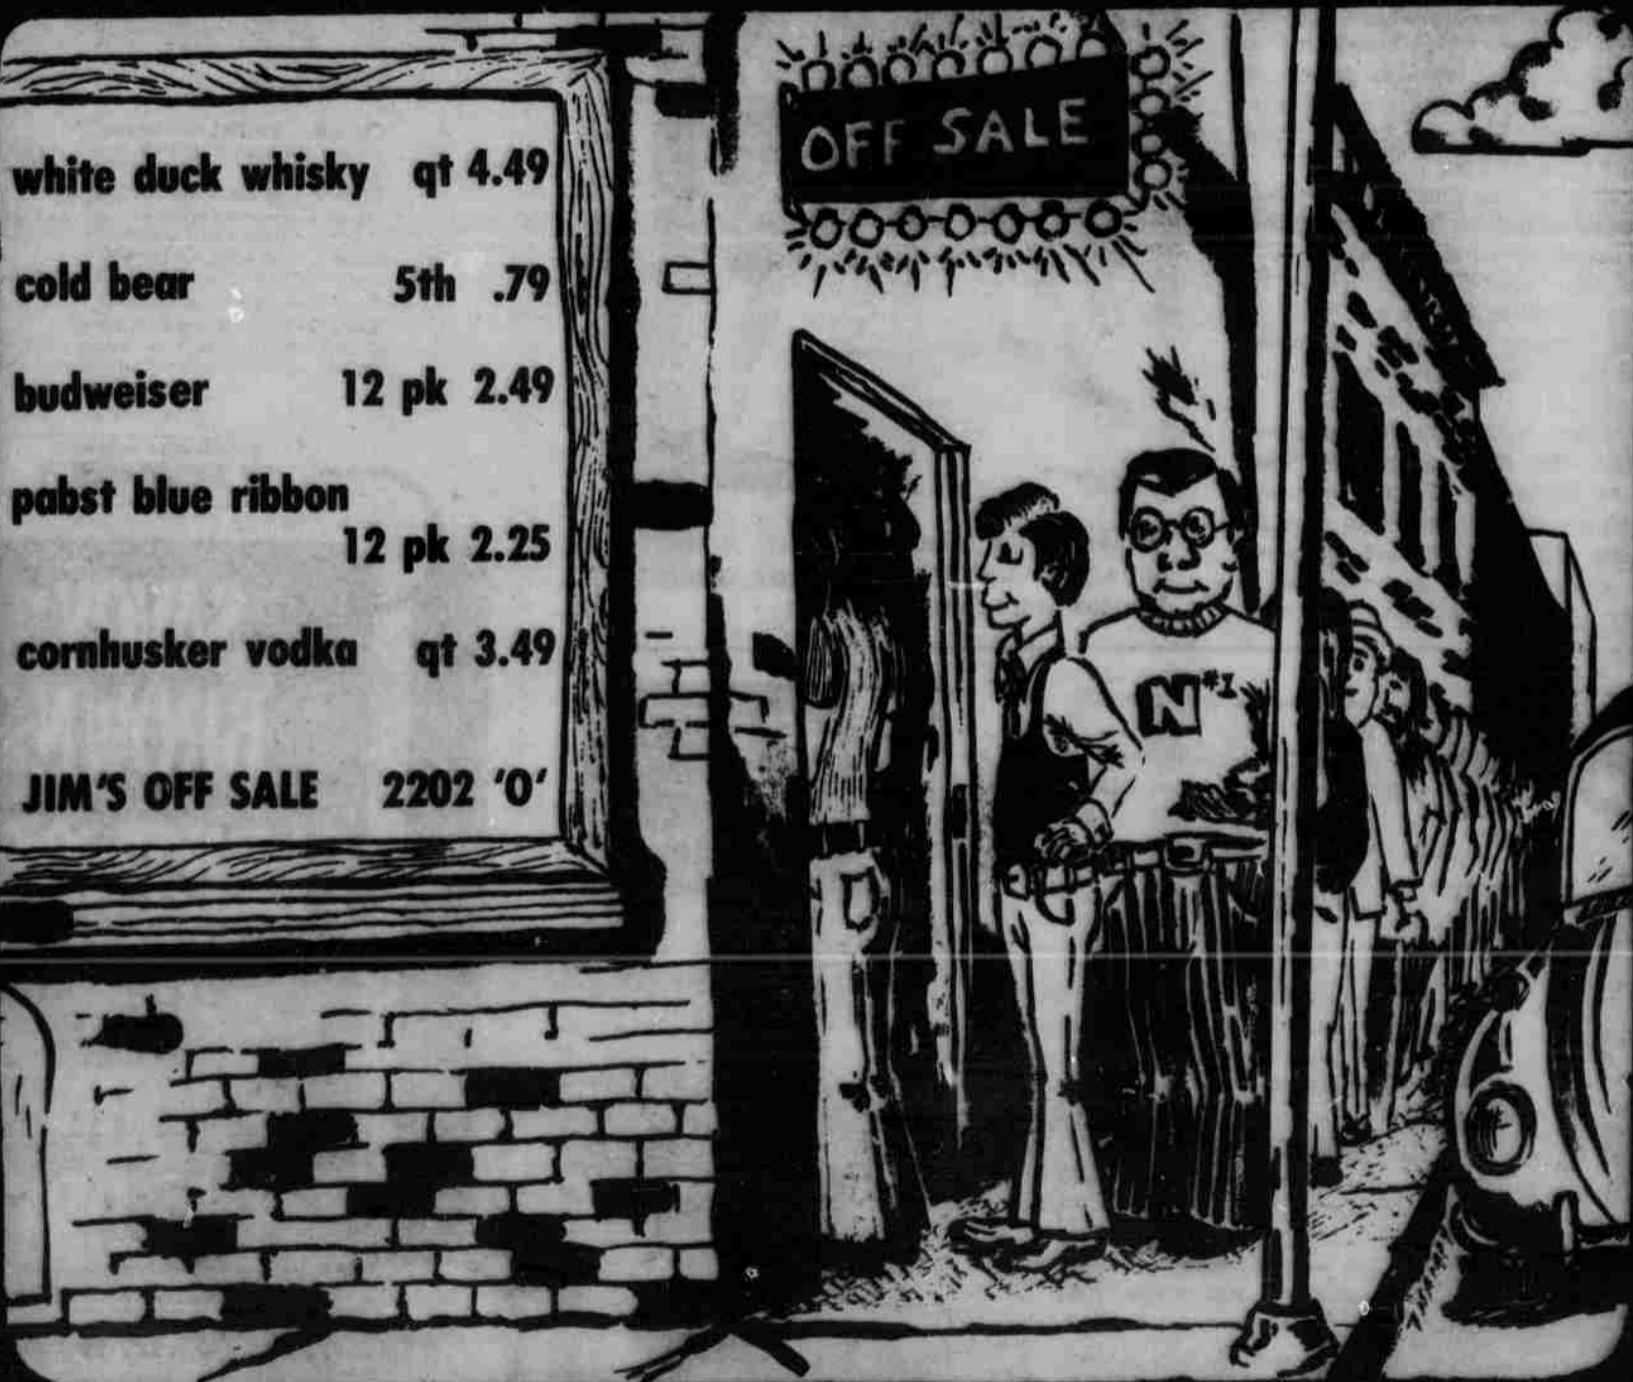 white duck whisky qt 4.49
cold bear 5th .79
budweiser 12 pk 2.49
pabst blue ribbon
12 pk 2.25
cornhusker vodka qt 3.49
JIM'S OFF SALE 2202 'O'
OFF SALE
N #1